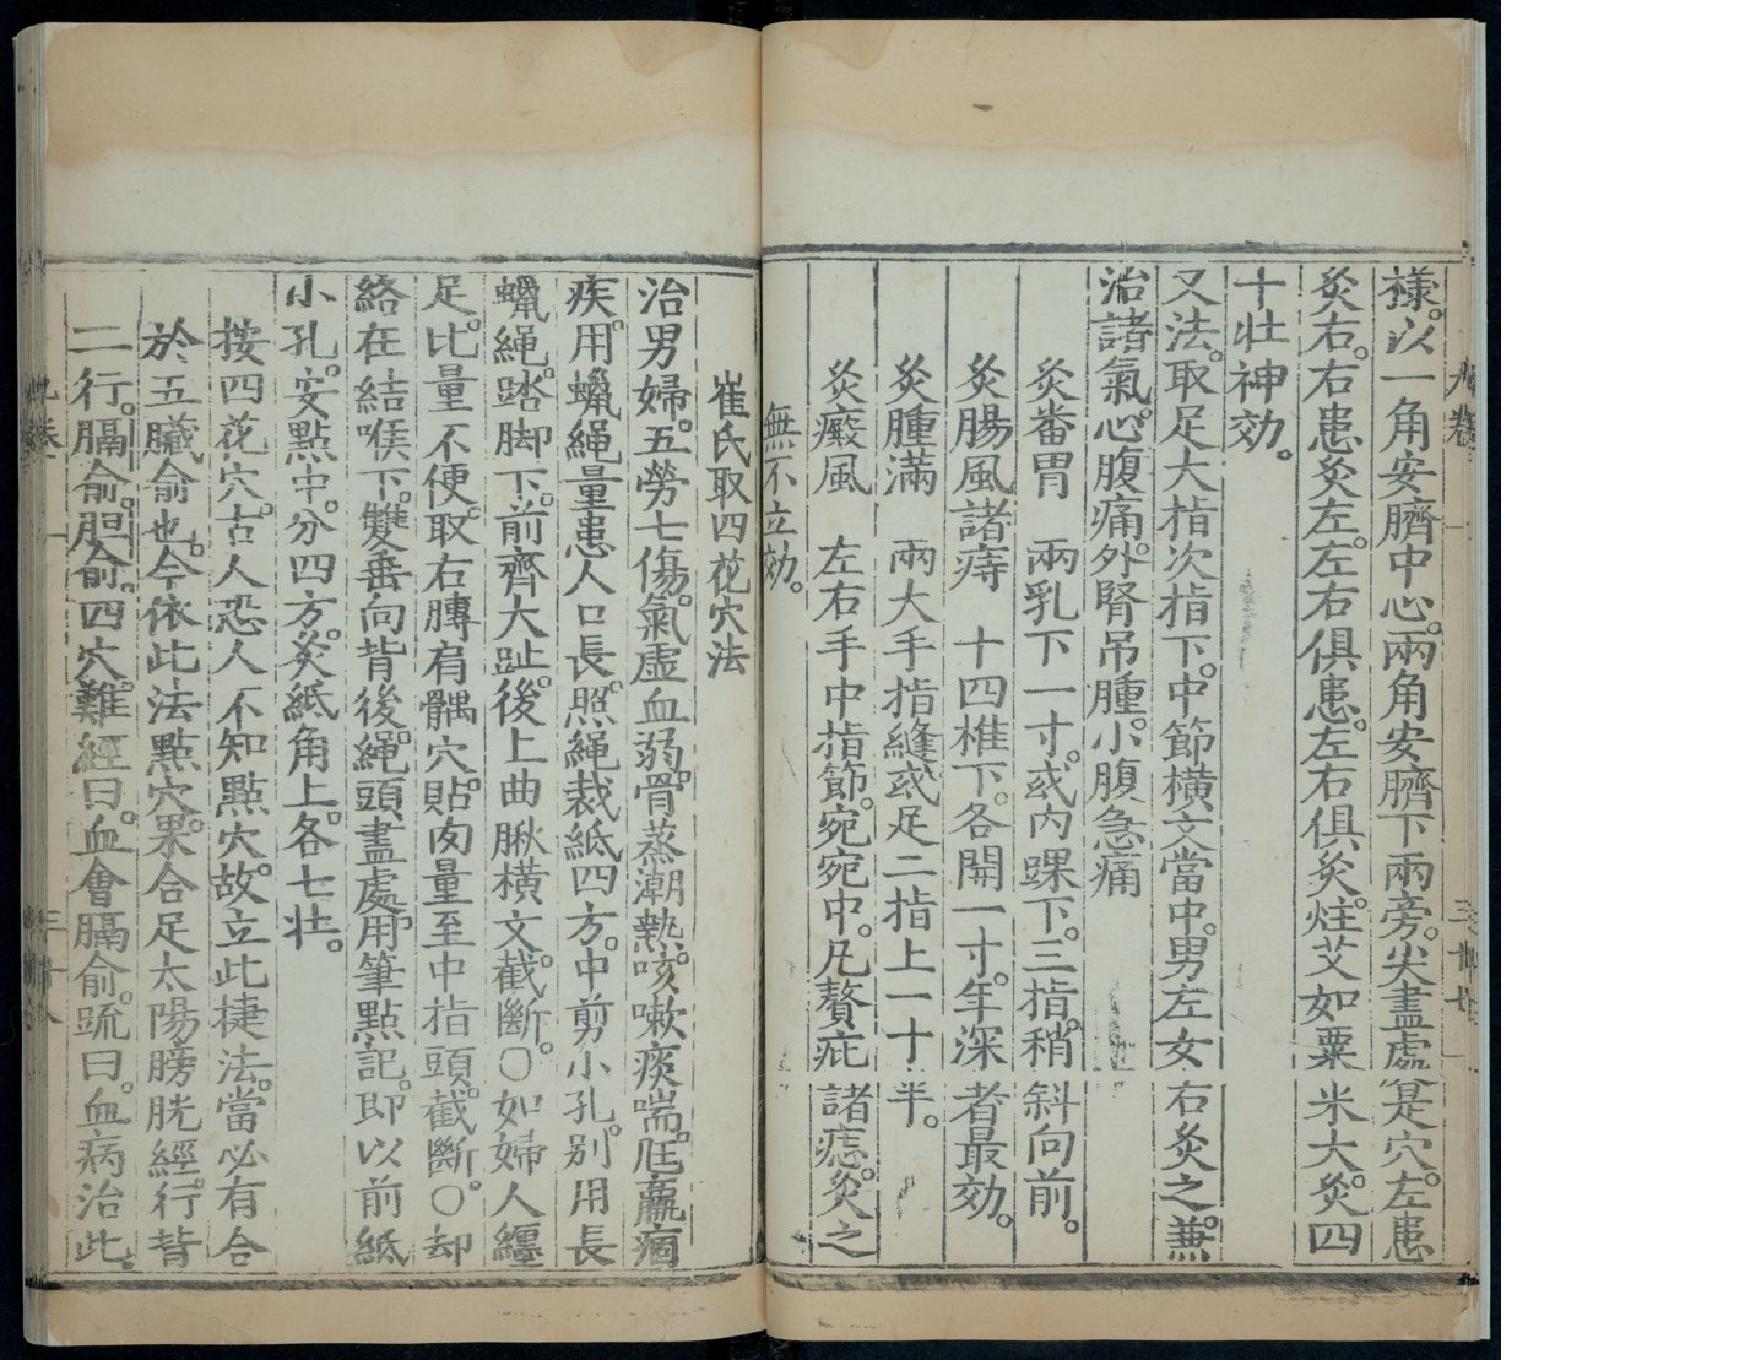 樣。以一角安臍中心。兩角安臍下兩旁。尖盡處是穴。左患
灸右。右患灸左。左右俱患。左右俱灸。炷艾如粟米大。灸四
十壯神効。
又法。取足大指次指下。中節橫文當中。男左女右灸之。兼
治諸氣。心腹痛。外腎吊腫。小腹急痛
灸番胃　兩乳下一寸。或內踝下。三指。稍斜向前。
灸腸風諸痔　十四椎下。各開一寸。年深者最効。
灸腫滿　兩大手指縫或足二指上一寸半。
灸癜風　左右手中指節。宛宛中。凡贅疣諸痣。灸之
無不立効。
崔氏取四花穴法
治男婦。五勞七傷。氣虛血弱。骨蒸潮熱。咳嗽痰喘。尫羸痼
疾。用蠟繩量患人口長。照繩裁紙四方。中剪小孔。別用長
蠟繩。踏脚下。前齊大趾。後上曲脷橫文。截斷。○如婦人纏
足。比量不便。取右膊肩髃穴。貼肉量至中指頭。截斷。○却
絡在結喉下。雙垂向背後。繩頭盡處。用筆點記。即以前紙
小孔。安點中。分四方。灸紙角上。各七壯。
按四花穴。古人恐人不知點穴。故立此捷法。當必有合
於五臟俞也。今依此法點穴。果合足太陽膀胱經。行背
二行。膈俞。胆俞。四穴。難經曰。血會膈俞。疏曰。血病治此。